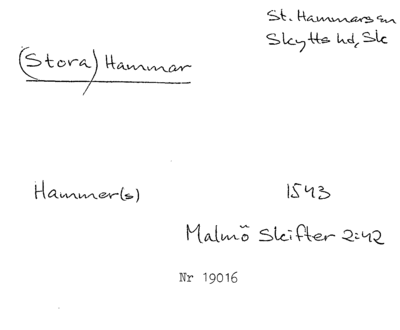 St. Hammars sn
Skytts hd, Sk
(Stora) Hammar
Hammer(s) 1543
Malmö Skifter 2:42
Nr 19016